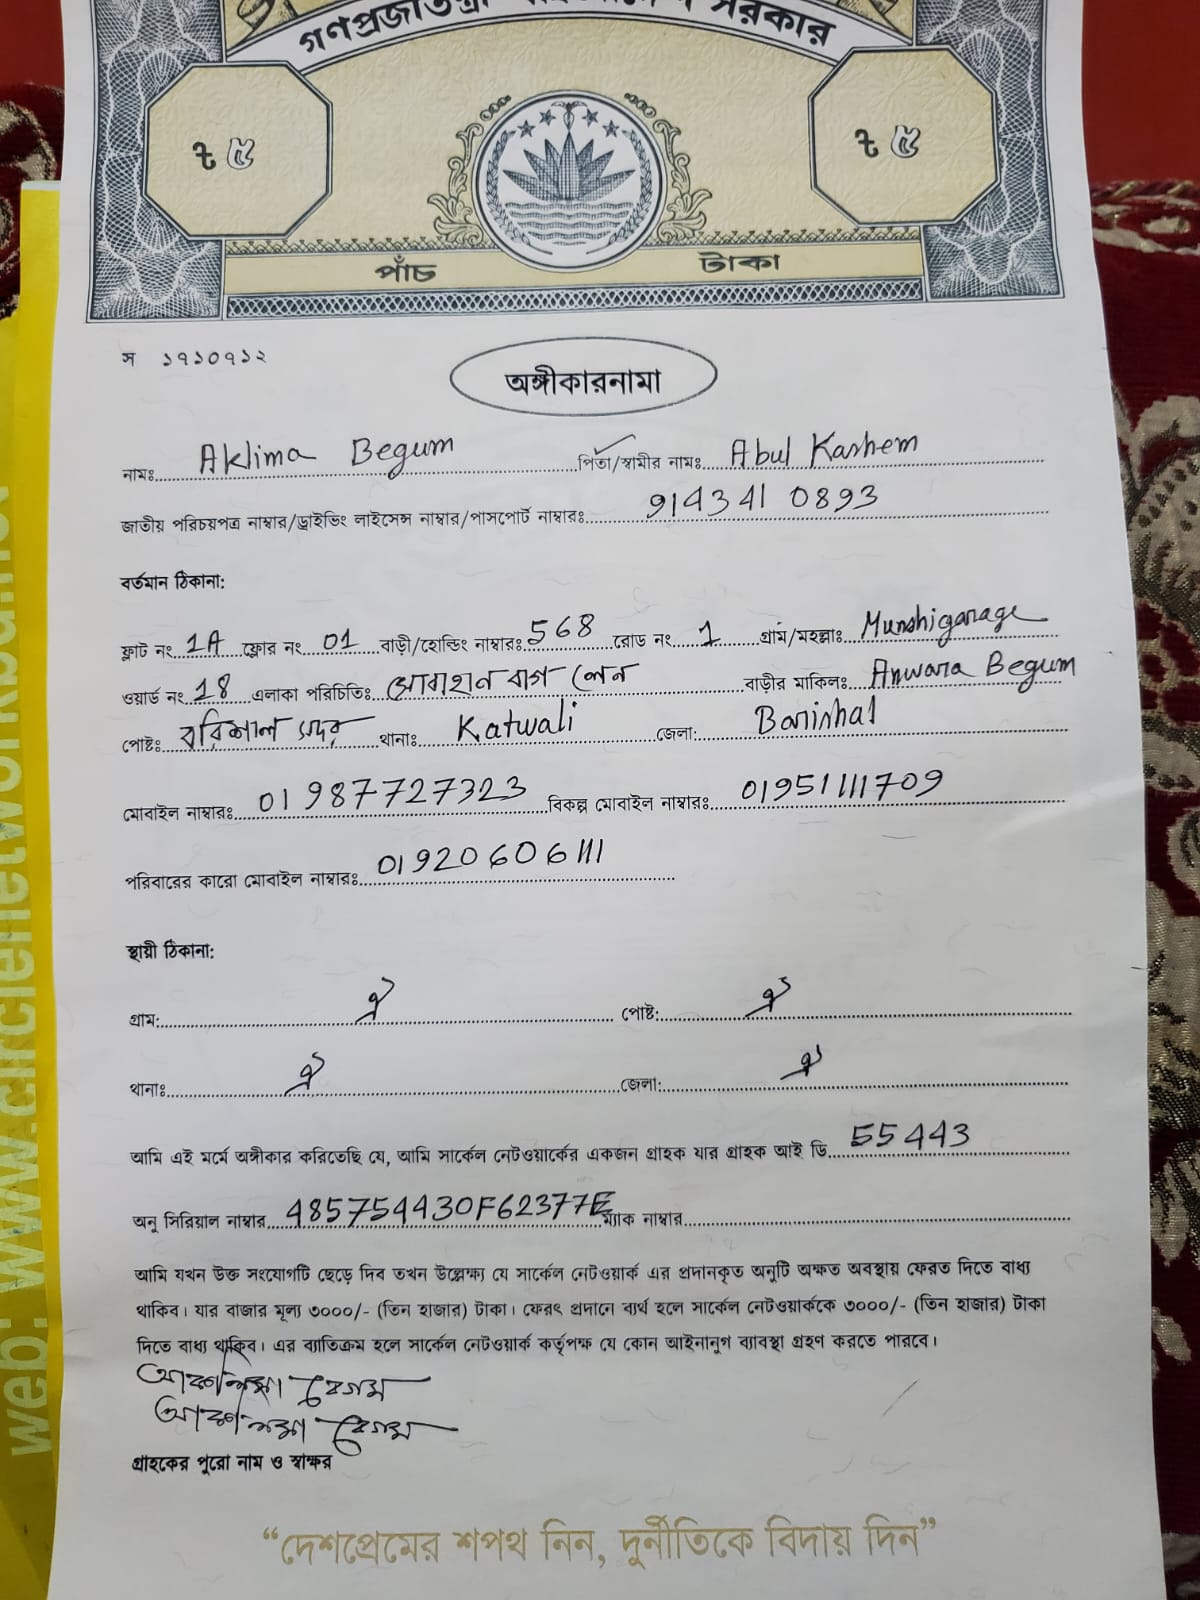 গণপ্রজাতন্ত্রী বাংলাদেশ সরকার
৳ ৫
৳ ৫
পাঁচ টাকা
স ১৭১০৭১২
অঙ্গীকারনামা
নামঃ Aklima Begum পিতা/স্বামীর নামঃ Abul Kashem
জাতীয় পরিচয়পত্র নাম্বার/ড্রাইভিং লাইসেন্স নাম্বার/পাসপোর্ট নাম্বারঃ 9143410893
বর্তমান ঠিকানা:
ফ্লাট নং 1A ফ্লোর নং 01 বাড়ী/হোল্ডিং নাম্বারঃ 568 রোড নং 1 গ্রাম/মহল্লাঃ Munshigarage
ওয়ার্ড নং 18 এলাকা পরিচিতিঃ বাগ লেন বাড়ীর মাকিলঃ Anwara Begum
পোষ্টঃ বরিশাল সদর থানাঃ Katwali জেলা: Barishal
মোবাইল নাম্বারঃ 01987727323 বিকল্প মোবাইল নাম্বারঃ 01951111709
পরিবারের কারো মোবাইল নাম্বারঃ 01920606111
স্থায়ী ঠিকানা:
গ্রাম: ঐ পোষ্ট: ঐ
থানাঃ ঐ জেলা: ঐ
আমি এই মর্মে অঙ্গীকার করিতেছি যে, আমি সার্কেল নেটওয়ার্কের একজন গ্রাহক যার গ্রাহক আই ডি 55443
অনু সিরিয়াল নাম্বার 485754430F62377E ম্যাক নাম্বার
আমি যখন উক্ত সংযোগটি ছেড়ে দিব তখন উল্লেক্ষ্য যে সার্কেল নেটওয়ার্ক এর প্রদানকৃত অনুটি অক্ষত অবস্থায় ফেরত দিতে বাধ্য
থাকিব। যার বাজার মূল্য ৩০০০/- (তিন হাজার) টাকা। ফেরৎ প্রদানে ব্যর্থ হলে সার্কেল নেটওয়ার্ককে ৩০০০/- (তিন হাজার) টাকা
দিতে বাধ্য থাকিব। এর ব্যাতিক্রম হলে সার্কেল নেটওয়ার্ক কর্তৃপক্ষ যে কোন আইনানুগ ব্যাবস্থা গ্রহণ করতে পারবে।
আকলিমা বেগম
আকলিমা বেগম
গ্রাহকের পুরো নাম ও স্বাক্ষর
“দেশপ্রেমের শপথ নিন, দুর্নীতিকে বিদায় দিন”
web: www.circlenetworkbd.net